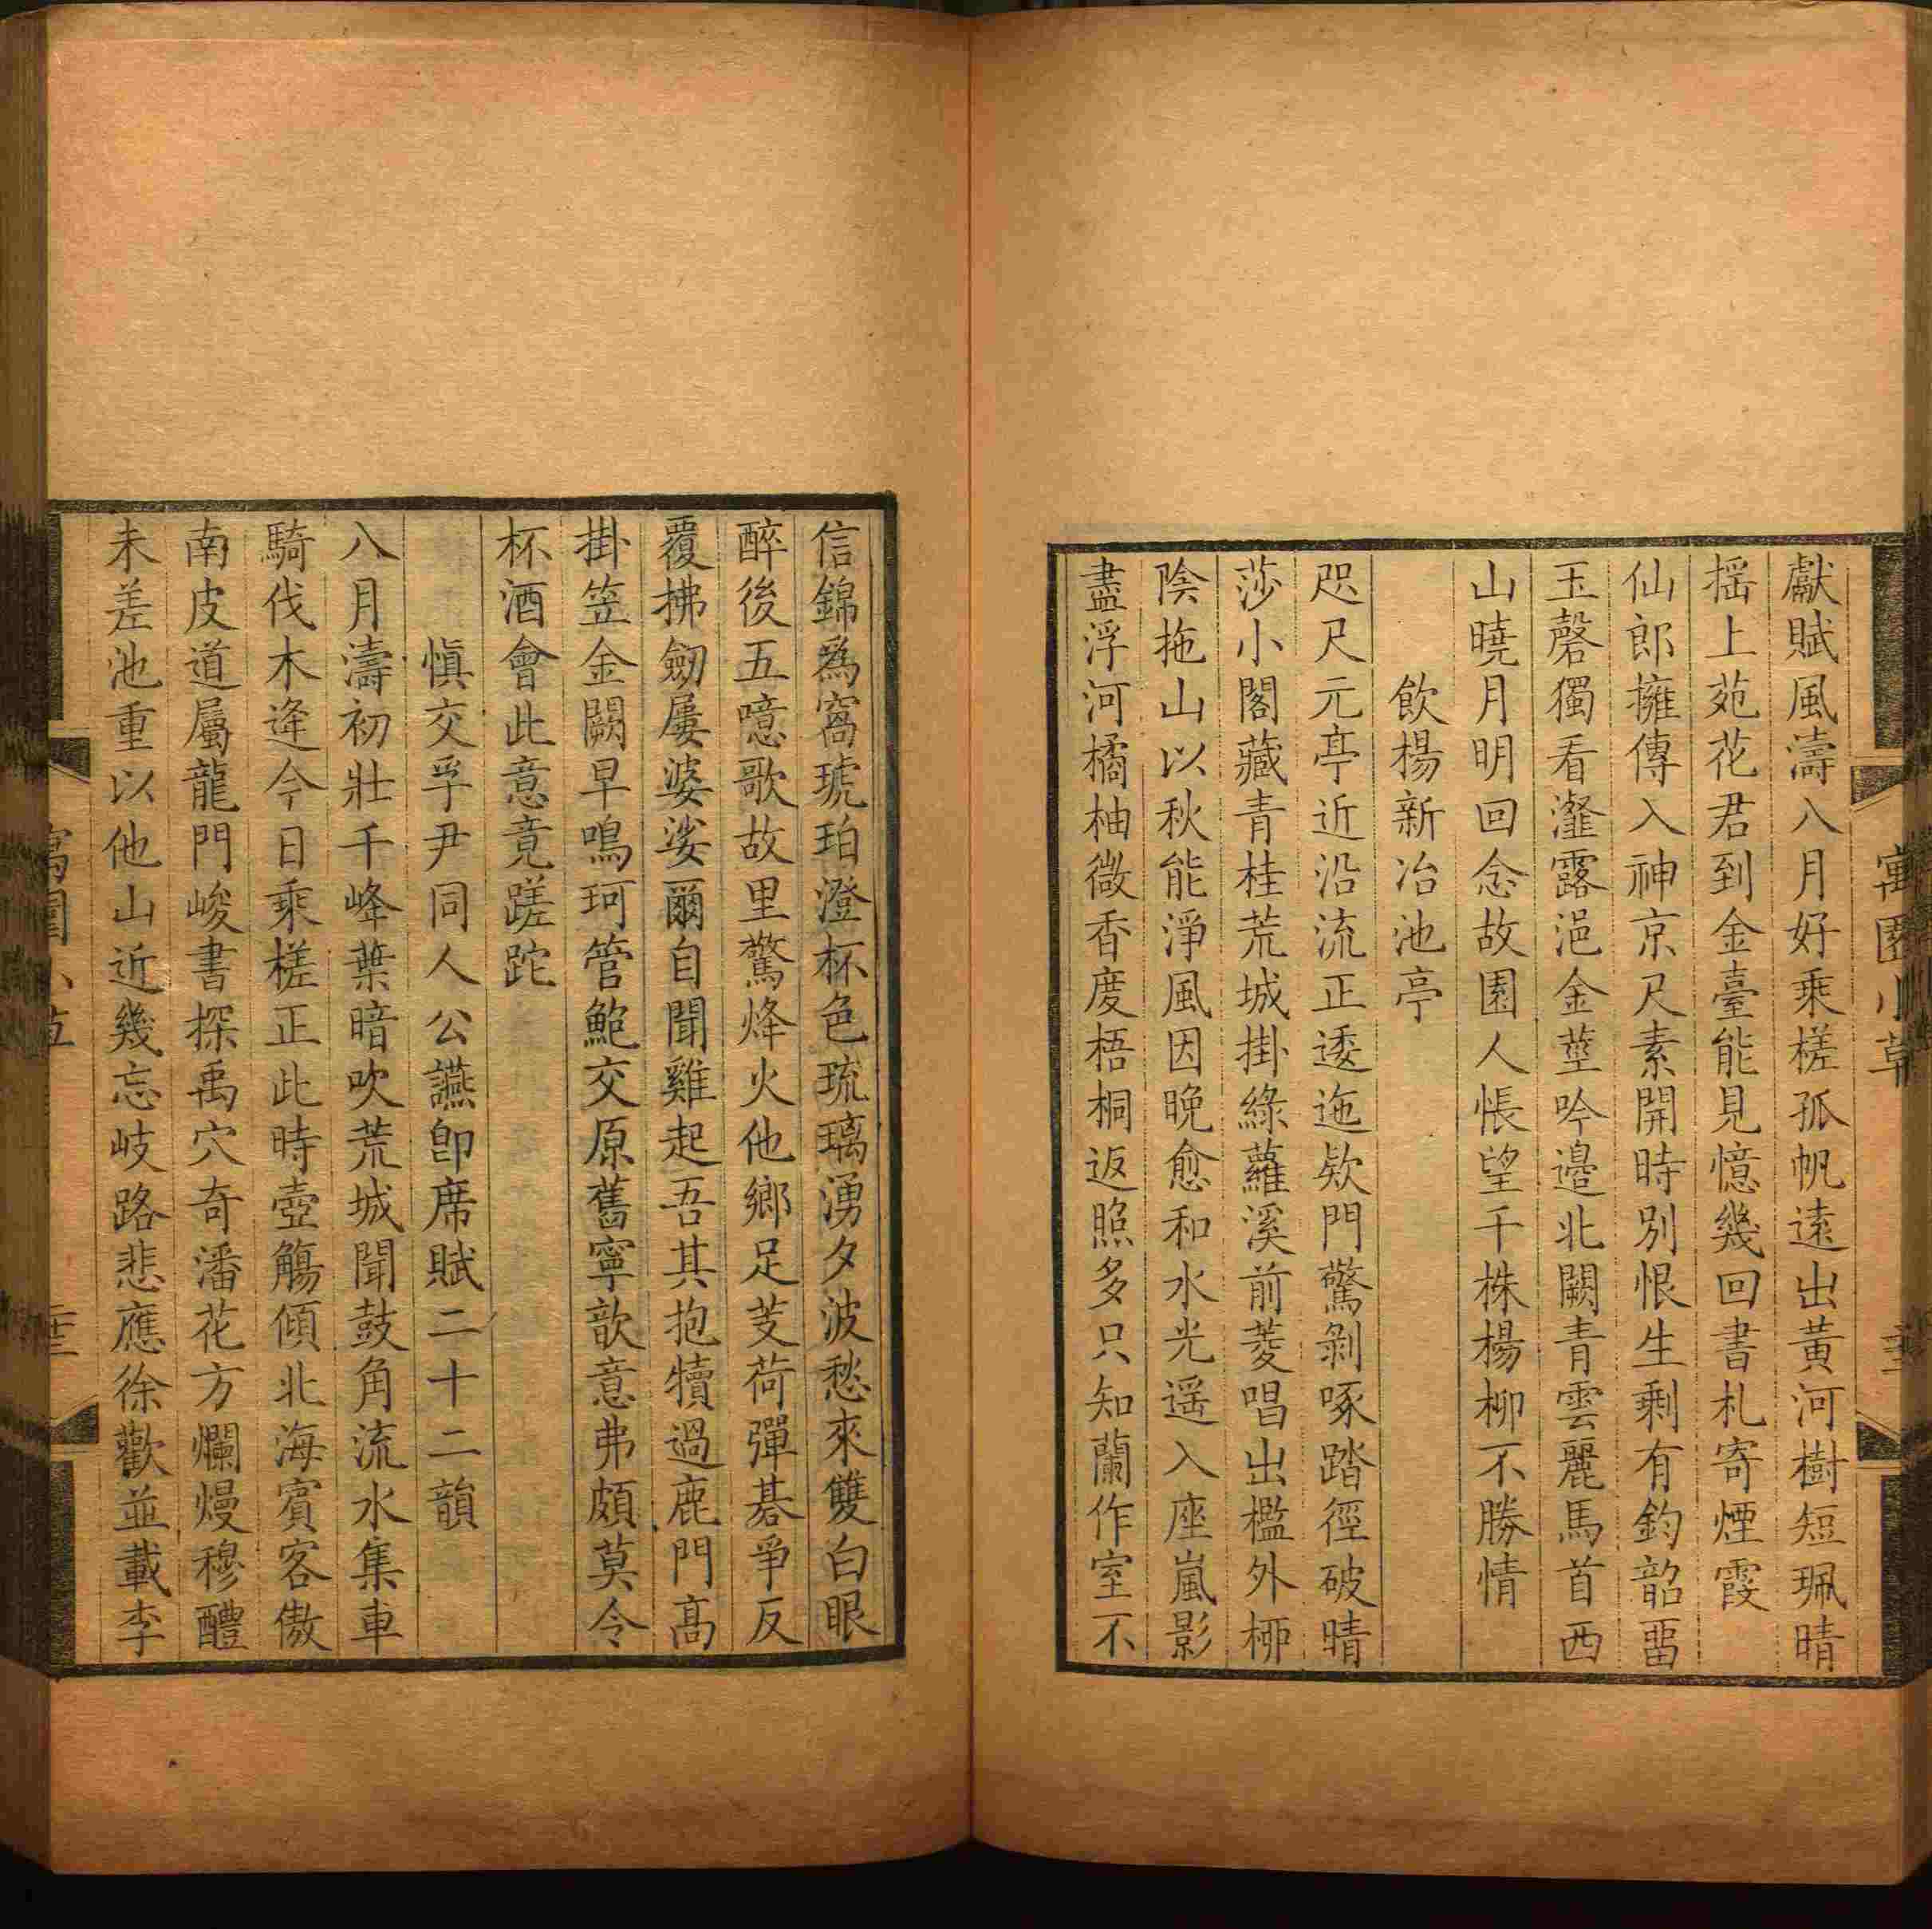 寓園小草
獻賦風濤八月好乘槎孤帆遠出黃河樹短珮晴
搖上苑花君到金臺能見憶幾回書札寄煙霞
仙郎擁傳入神京尺素開時別恨生剩有鈞韶畱
玉磬獨看瀣露浥金莖吟邉北闕青雲麗馬首西
山曉月明回念故園人悵望千株楊柳不勝情
飲楊新冶池亭
咫尺元亭近沿流正逶迤欵門驚剝啄踏徑破晴
莎小閣藏青桂荒城掛綠蘿溪前菱唱出檻外桺
陰拖山以秋能淨風因晚愈和水光遥入座嵐影
盡浮河橘柚微香度梧桐返照多只知蘭作室不
信錦爲窩琥珀澄杯色琉璃湧夕波愁來雙白眼
醉後五噫歌故里驚烽火他鄉足芰荷彈碁爭反
覆拂劒屢婆娑爾自聞雞起吾其抱犢過鹿門高
掛笠金闕早鳴珂管鮑交原舊寧歆意弗頗莫令
杯酒會此意竟蹉跎
愼交孚尹同人公讌卽席賦二十二韻
八月濤初壯千峰葉暗吹荒城聞鼓角流水集車
騎伐木逄今日乘槎正此時壺觴傾北海賓客傲
南皮道屬龍門峻書探禹穴奇潘花方爛熳穆醴
未差池重以他山近幾忘岐路悲應徐歡並載李
小草